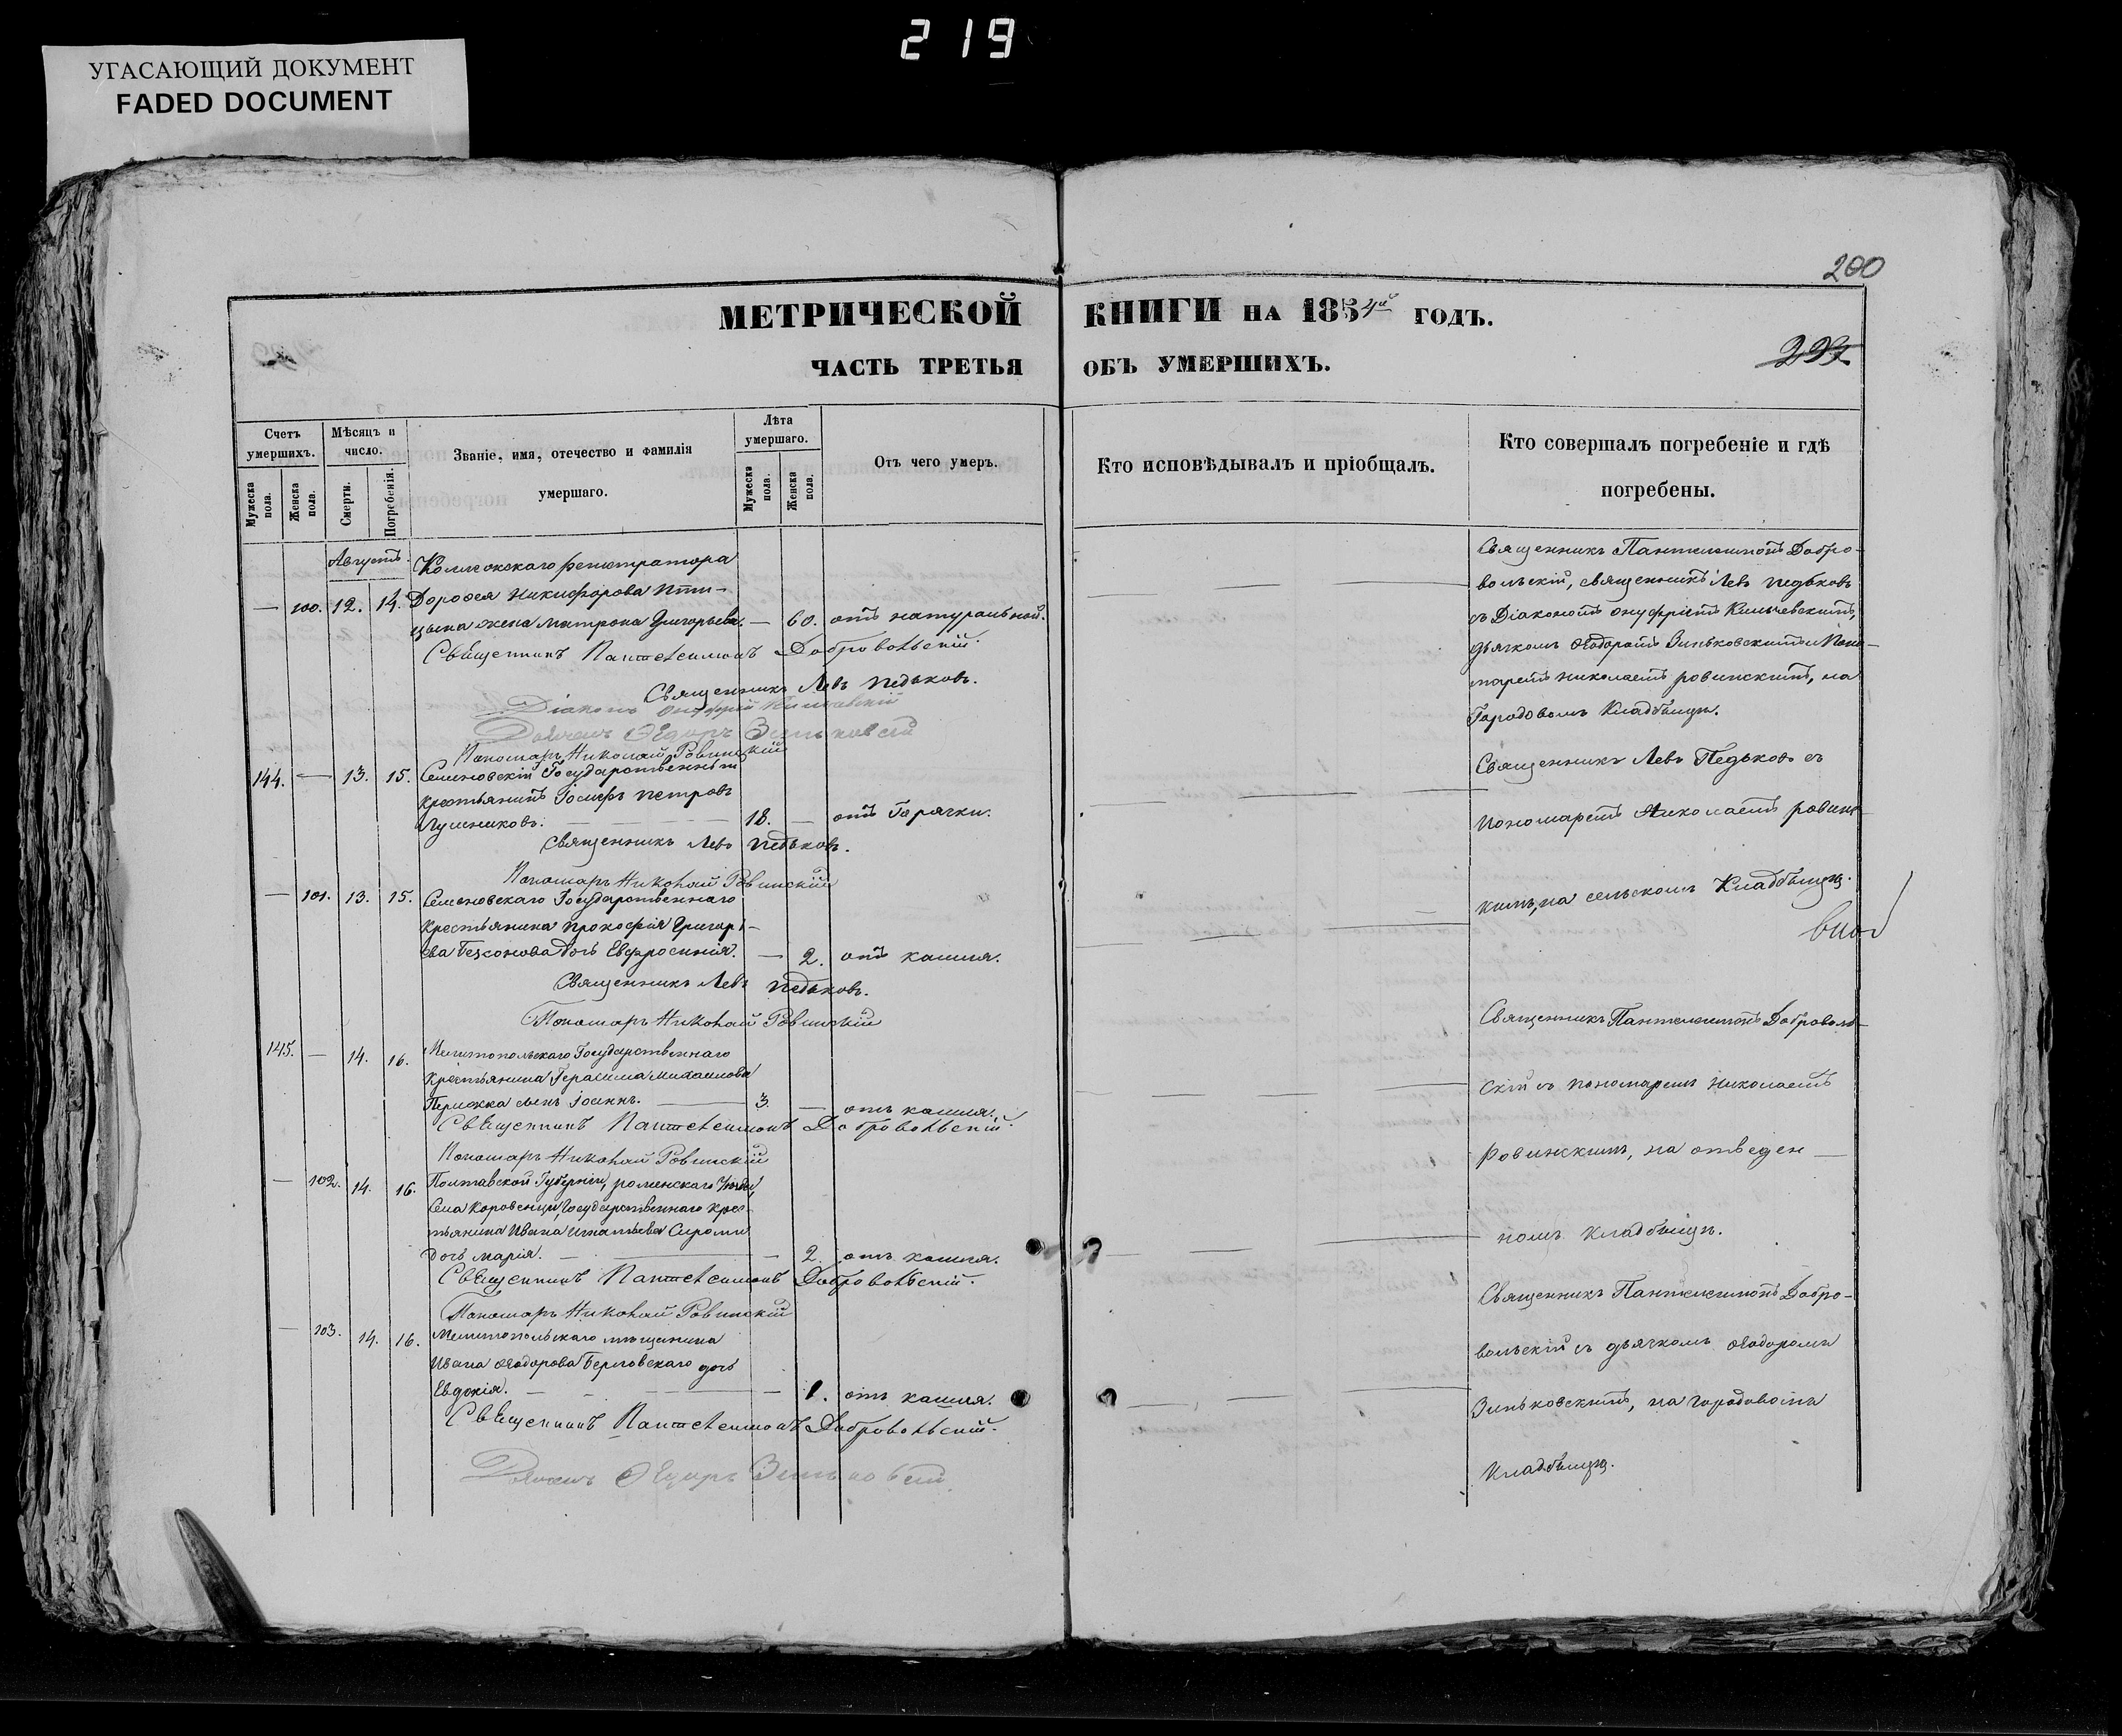 219
УГАСАЮЩИЙ ДОКУМЕНТ
FADED DOCUMENT
200
МЕТРИЧЕСКОЙ КНИГИ НА 1854й ГОДЪ.
ЧАСТЬ ТРЕТЬЯ ОБЪ УМЕРШИХЪ.
Счетъ умершихъ.
Мужеска пола.
Женска пола.
Мѣсяцъ и число.
Смерти.
Погребенія.
Званіе, имя, отечество и фамилія
умершаго.
Лѣта умершаго.
Мужеска пола.
Женска пола.
Отъ чего умеръ.
Кто исповѣдывалъ и пріобщалъ.
Кто совершалъ погребеніе и гдѣ
погребены.
Августъ.
— 100. 12. 14.
Дорофея Никифорова Пти-
цына жена Матрона Григорьева. — 60. отъ натуральной.
Священникъ Пантелеимонъ Добровольскій.
Священникъ Левъ Педьковъ.
Діаконъ
Зиньковскій
Пономарь Николай Ровинскій
144. — 13. 15. Семеновскій Государственный
крестьянинъ Іосифъ Петровъ
18. — отъ Горячки.
Священникъ Левъ Педьковъ.
Пономарь Николай Ровинскій
— 101. 13. 15. Семеновскаго Государственнаго
крестьянина Прокофія Григорь-
ева дочь Евфросинія. — 2. отъ кашля.
Священникъ Левъ Педьковъ.
Пономарь Николай Ровинскій
145. — 14. 16. Мелитопольскаго Государственнаго
крестьянина Герасима Михаилова
сынъ Іоаннъ. — 3. — отъ кашля.
Священникъ Пантелеимонъ Добровольскій.
Пономарь Николай Ровинскій
— 102. 14. 16. Полтавской Губерніи, роменскаго уѣзда,
Села Государственнаго крес-
тьянина Ивана
дочь Марія. — 2. отъ кашля.
Священникъ Пантелеимонъ Добровольскій.
Пономарь Николай Ровинскій
— 103. 14. 16. Мелитопольскаго мѣщанина
Ивана Ѳеодорова дочь
Евдокія. — 1. отъ кашля.
Священникъ Пантелеимонъ Добровольскій.
Зиньковскій
Священникъ Пантелеимонъ Добро-
вольскій, священникъ Левъ Педьковъ
съ Діакономъ Онуфріемъ
дьячкомъ Ѳеодоромъ Зиньковскимъ и Поно-
маремъ Николаемъ Ровинскимъ, на
Городовомъ Кладбищѣ.
Священникъ Левъ Педьковъ съ
Пономаремъ Николаемъ Ровинс-
кимъ, на сельскомъ Кладбищѣ.
Священникъ Пантелеимонъ Доброволь-
скій съ пономаремъ Николаемъ
Ровинскимъ, на отведен —
номъ кладбищѣ.
Священникъ Пантелеимонъ Добро-
вольскій съ дьячкомъ Ѳеодоромъ
Зиньковскимъ, на городовомъ
Кладбищѣ.